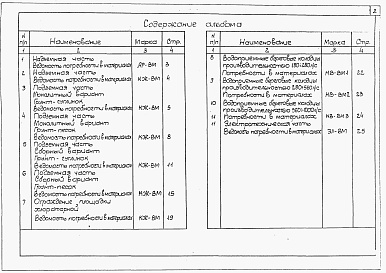 2
Содержание альбома
N п/п
Наименование
Марка
Стр.
1
2
3
4
1
Надземная часть
Ведомость потребности в материалах
АР-ВМ
3
2
Надземная часть
Ведомость потребности в материалах
КЖ-ВМ
4
3
Подземная часть
Монолитный вариант
Грунт-суглинок
Ведомость потребности в материалах
КЖ-ВМ
5
4
Подземная часть
Монолитный вариант
Грунт-песок
Ведомость потребности в материалах
КЖ-ВМ
8
5
Подземная часть
Сборный вариант
Грунт-суглинок
Ведомость потребности в материалах
КЖ-ВМ
11
6
Подземная часть
Сборный вариант
Грунт-песок
Ведомость потребности в материалах
КЖ-ВМ
15
7
Ограждение площадки
хлораторной
Ведомость потребности в материалах
КЖ-ВМ
19
N п/п
Наименование
Марка
Стр.
1
2
3
4
8
Водоприемные береговые колодцы
производительностью
Потребности в материалах
НВ-ВМ1
22
9
Водоприемные береговые колодцы
производительностью
Потребности в материалах
НВ-ВМ2
23
10
Водоприемные береговые колодцы
производительностью
Потребности в материалах
НВ-ВМ3
24
11
Электротехническая часть
Ведомость потребности в материалах
ЭЛ-ВМ
25